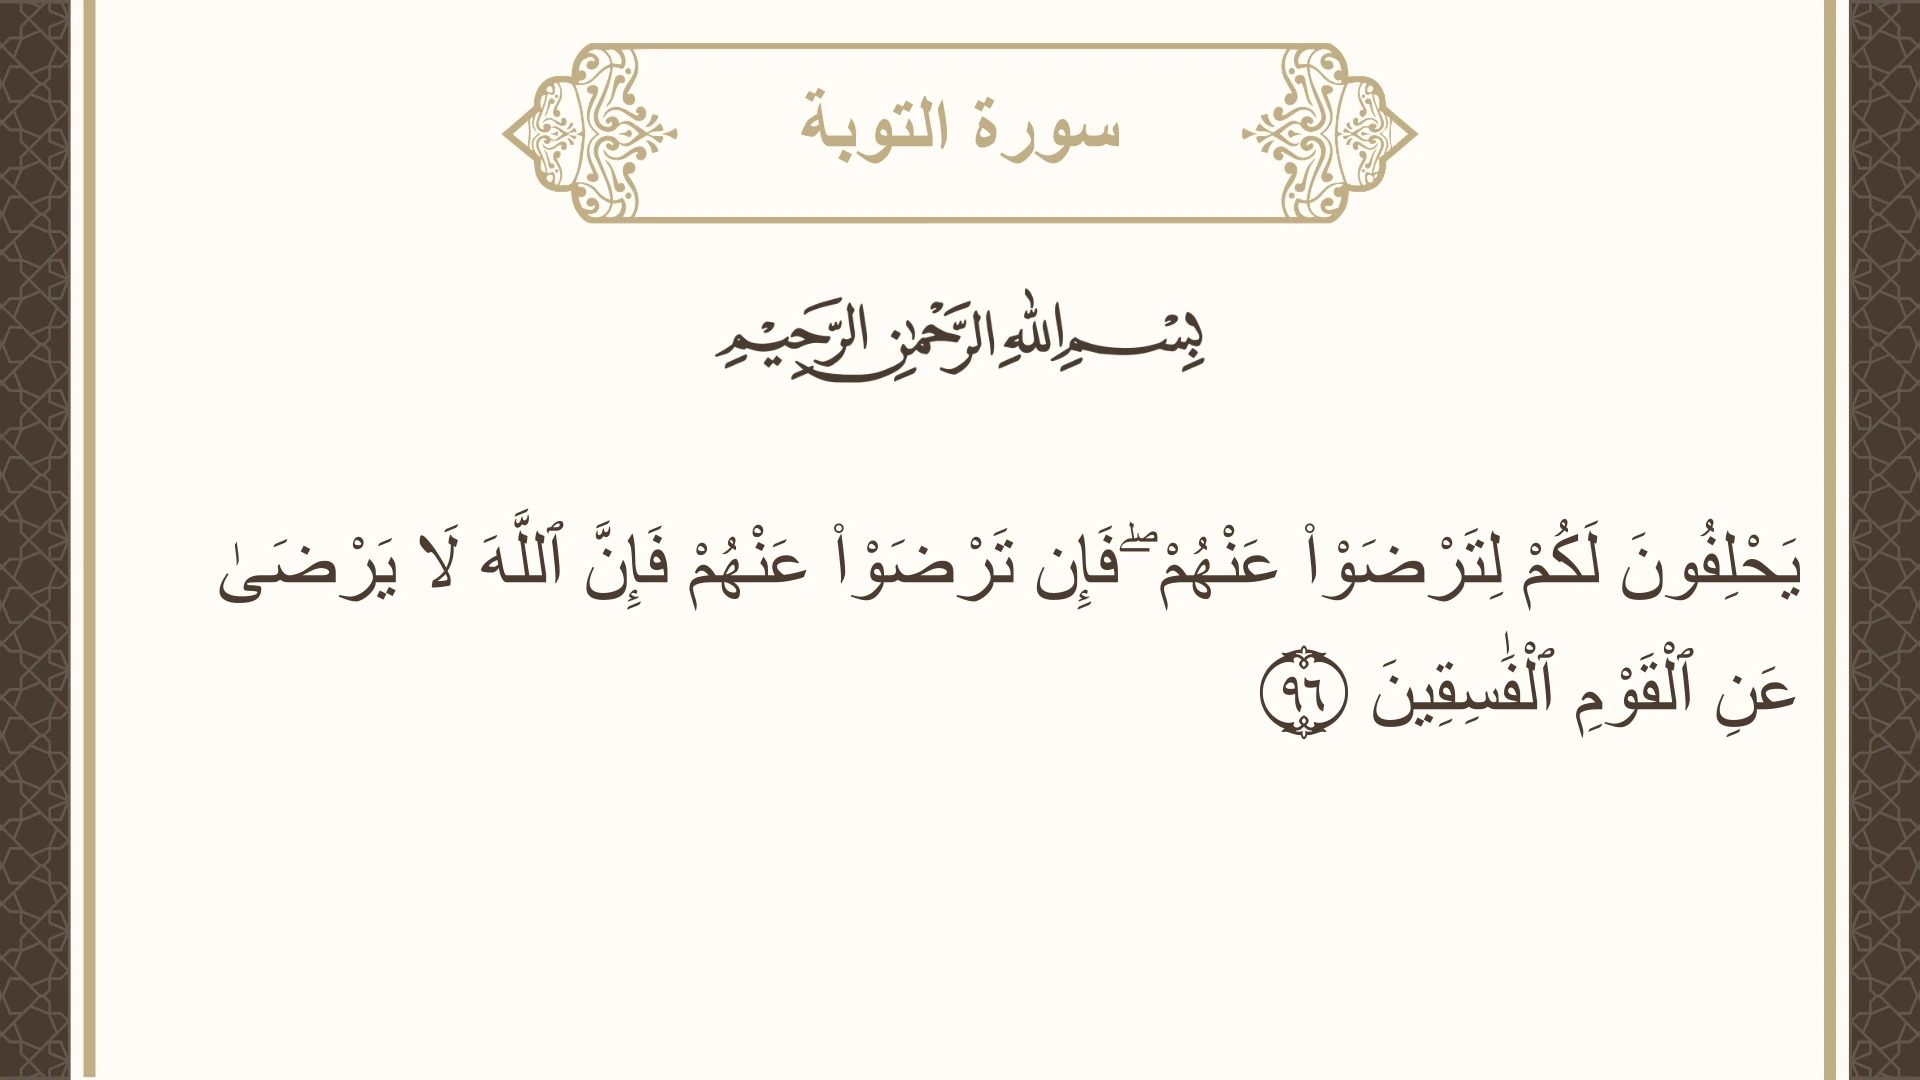 سورة التوبة
بِسْمِ اللهِ الرَّحْمٰنِ الرَّحِيْمِ
يَحْلِفُونَ لَكُمْ لِتَرْضَوْا۟ عَنْهُمْ ۖ فَإِن تَرْضَوْا۟ عَنْهُمْ فَإِنَّ ٱللَّهَ لَا يَرْضَىٰ
عَنِ ٱلْقَوْمِ ٱلْفَٰسِقِينَ ٩٦